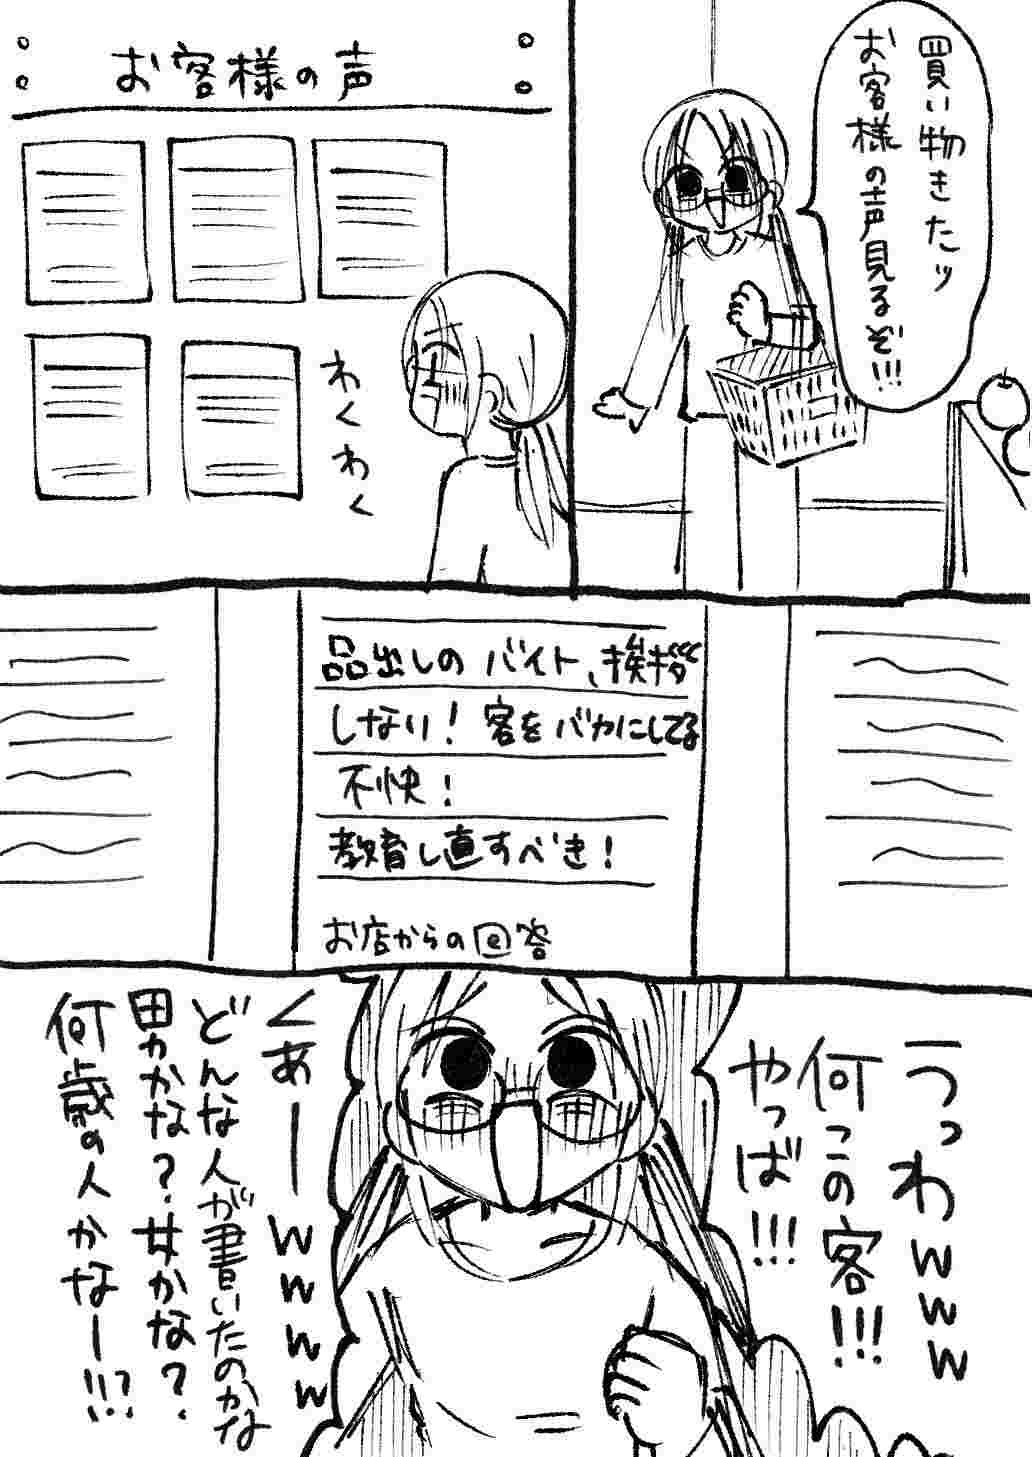 買い物きたッ
お客様の声見るぞ!!!
お客様の声
わくわく
品出しのバイト、挨拶
しない！客をバカにしてる
不快！
教育し直すべき！
お店からの回答
うっわwww
何この客!!!
やっば!!!
くあーーwwww
どんな人が書いたのかな
男かな？女かな？
何歳の人かなー!!?